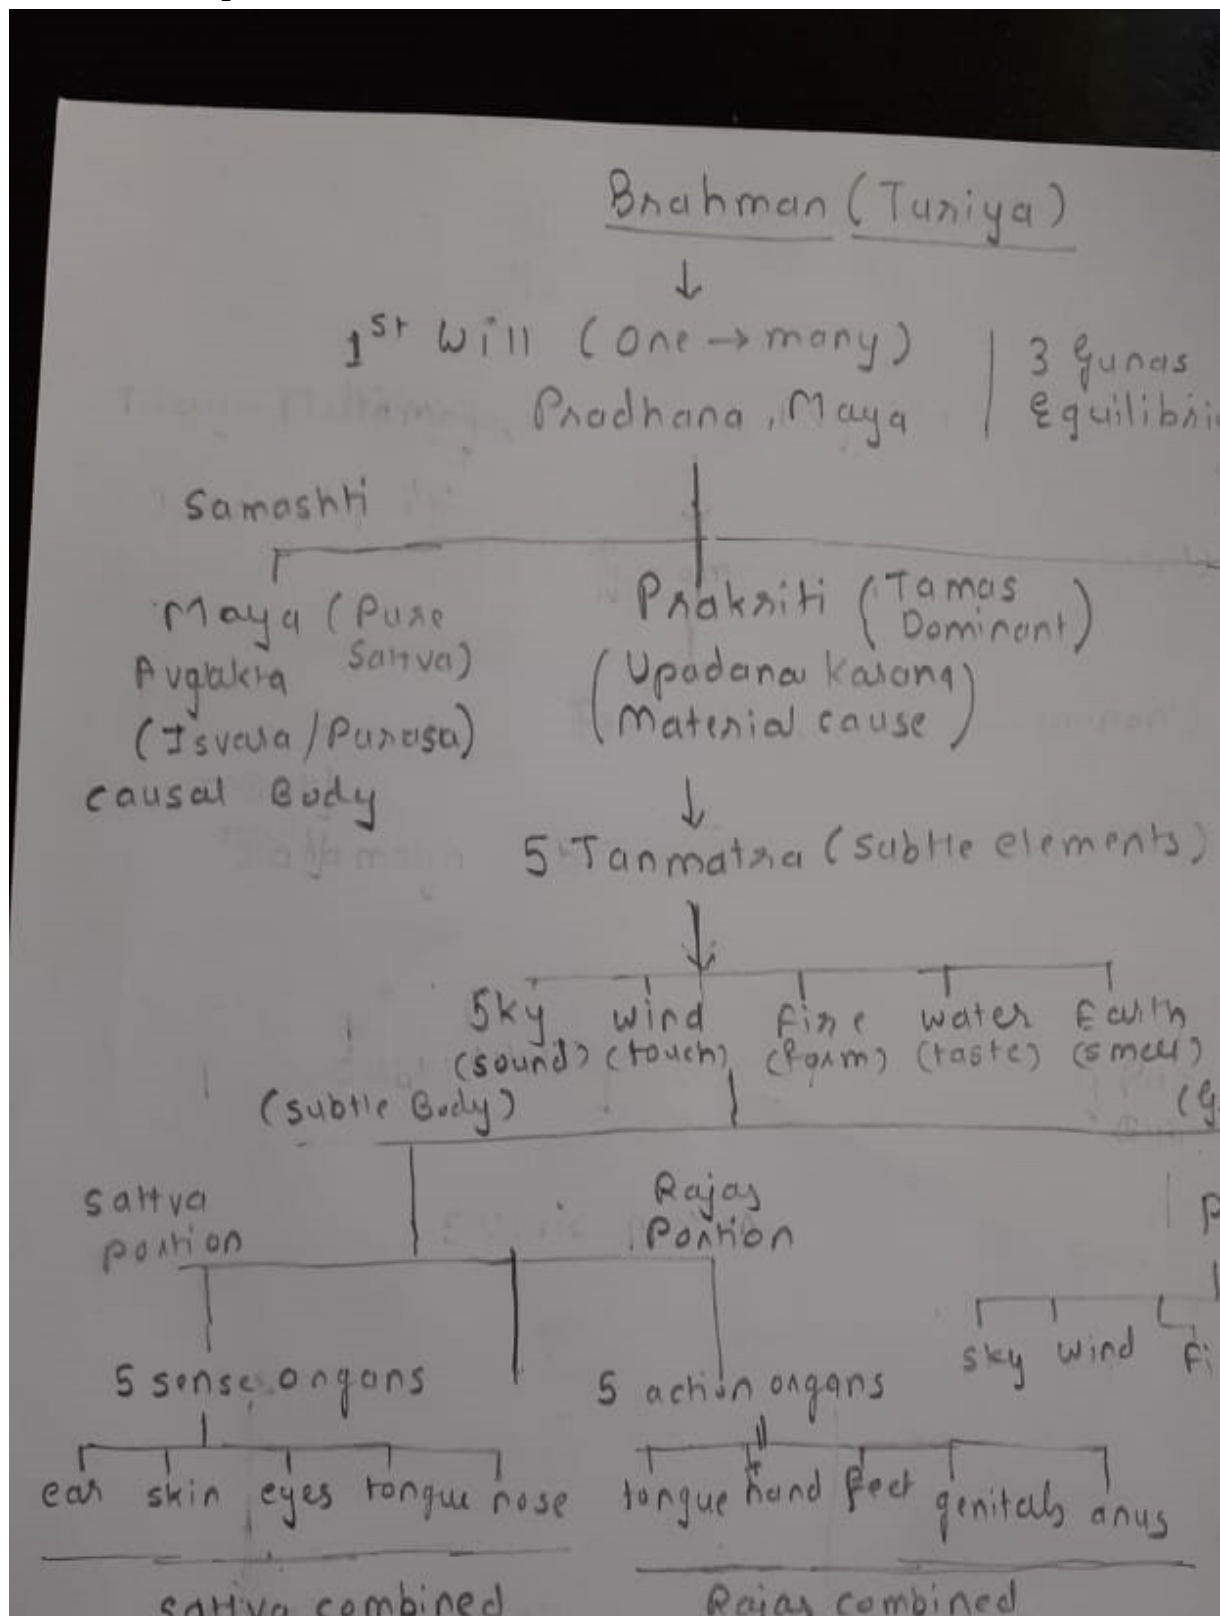 Brahman (Turiya)
↓
1st Will (One → many) | 3 Gunas
Pradhana, Maya | Equilibri
Samashti
Maya (Pure Sattva)
(Isvara / Purusa)
Causal Body
Prakriti (Tamas Dominant)
(Upadana Karana
Material cause)
↓
5 Tanmatra (subtle elements)
↓
Sky wind Fire water Earth
(sound) (touch) (form) (taste) (smell)
(subtle Body) (G
Sattva portion
Rajas Portion
P
sky wind fi
5 sense organs 5 action organs
ear skin eyes tongue nose tongue hand feet genitals anus
Sattva combined Rajas combined